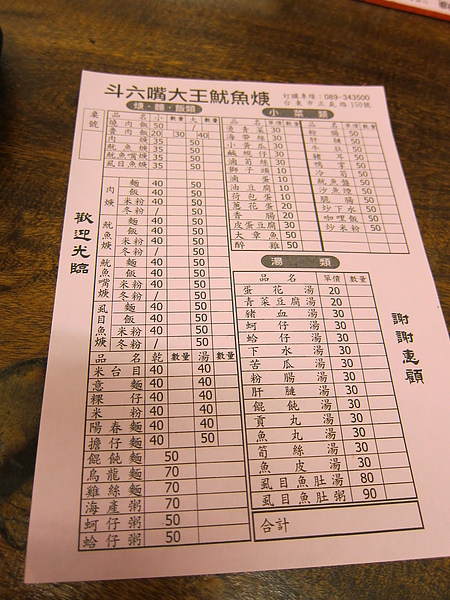 斗六嘴大王魷魚焿
訂購專線：089-343500
台東市正氣路150號
焿．麵．飯類
桌號
品名 小 數量 大 數量
爌肉飯 50 /
魯肉飯 20 30 40
肉焿 35 50
魷魚焿 35 50
魷魚嘴焿 35 50
虱目魚焿 35 50
肉焿
麵 40 50
飯 40 50
米粉 40 50
冬粉 / 50
魷魚焿
麵 40 50
飯 40 50
米粉 40 50
冬粉 / 50
魷魚嘴焿
麵 40 50
飯 40 50
米粉 40 50
冬粉 / 50
虱目魚焿
麵 40 50
飯 40 50
米粉 40 50
冬粉 / 50
品名 乾 數量 湯 數量
米台目 40 40
意麵 40 40
粿仔 40 40
米粉 40 40
陽春麵 40 40
擔仔麵 40 50
餛飩麵 50
烏龍麵 70
雞絲麵 50
海產粥 70
蚵仔粥 50
蛤仔粥 50
歡迎光臨
小菜類
品名 單價 數量
燙青菜 30
海帶絲 30
小黃瓜 30
鹹蜆仔 30
滷筍絲 30
獅子頭 10
滷蛋 10
油豆腐 10
荷包蛋 10
蔥花蛋 20
香腸 20
皮蛋豆腐 30
大章魚 50
醉雞 50
品名 單價 數量
粉腸 50
肝腱 50
牛腱 50
豬耳 50
嘴管 50
冷筍 50
魷魚盤 50
沙魚煙 50
脆腸 50
炒下水 50
咖哩飯 50
炒米粉 50
湯類
品名 單價 數量
蛋花湯 20
青菜豆腐湯 20
豬血湯 30
蚵仔湯 30
蛤仔湯 30
下水湯 30
苦瓜湯 30
粉腸湯 30
肝腱湯 30
餛飩湯 30
貢丸湯 30
魚丸湯 30
筍絲湯 30
魚皮湯 30
虱目魚肚湯 80
虱目魚肚粥 90
合計
謝謝惠顧